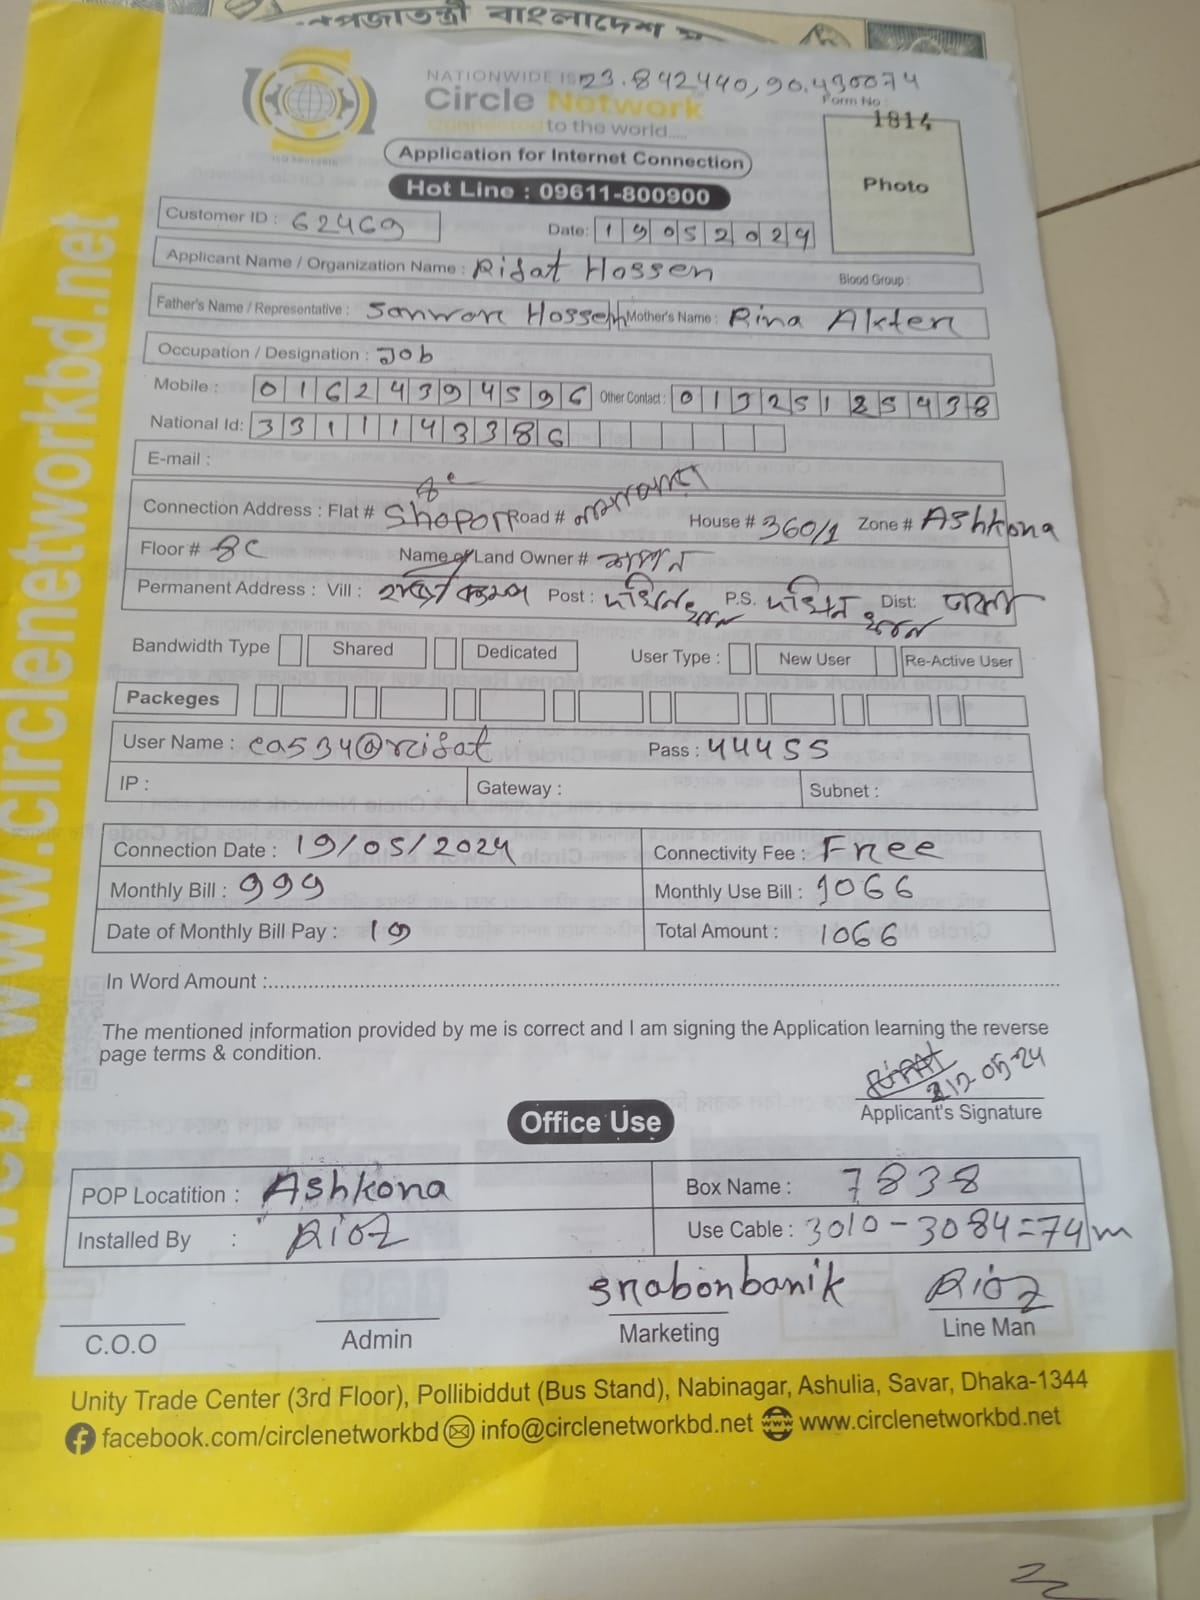 গণপ্রজাতন্ত্রী বাংলাদেশ
NATIONWIDE IS 23.842440, 90.490074
Circle Network
Form No :
Connected to the world.....
1814
Application for Internet Connection
Photo
Hot Line : 09611-800900
Customer ID : 62469 Date: 19052024
Applicant Name / Organization Name : Rifat Hossen Blood Group :
Father's Name / Representative : Sanwar Hossen Mother's Name : Rina Akter
Occupation / Designation : Job
Mobile : 01624394596 Other Contact : 01325125438
National Id: 3311143386
E-mail :
Connection Address : Flat # Shopon Road # House # 360/1 Zone # Ashkona
Floor # 8C Name of Land Owner #
Permanent Address : Vill : Post : P.S. Dist: ঢাকা
Bandwidth Type Shared Dedicated User Type : New User Re-Active User
Packeges
User Name : ca534@rifat Pass : 44455
IP : Gateway : Subnet :
Connection Date : 19/05/2024 Connectivity Fee : Free
Monthly Bill : 999 Monthly Use Bill : 1066
Date of Monthly Bill Pay : 19 Total Amount : 1066
In Word Amount :
The mentioned information provided by me is correct and I am signing the Application learning the reverse
page terms & condition.
05-24
Applicant's Signature
Office Use
POP Locatition : Ashkona Box Name : 7838
Installed By : Rioz Use Cable : 3010-3084=74m
snabonbanik Rioz
C.O.O Admin Marketing Line Man
Unity Trade Center (3rd Floor), Pollibiddut (Bus Stand), Nabinagar, Ashulia, Savar, Dhaka-1344
facebook.com/circlenetworkbd info@circlenetworkbd.net www.circlenetworkbd.net
www.circlenetworkbd.net